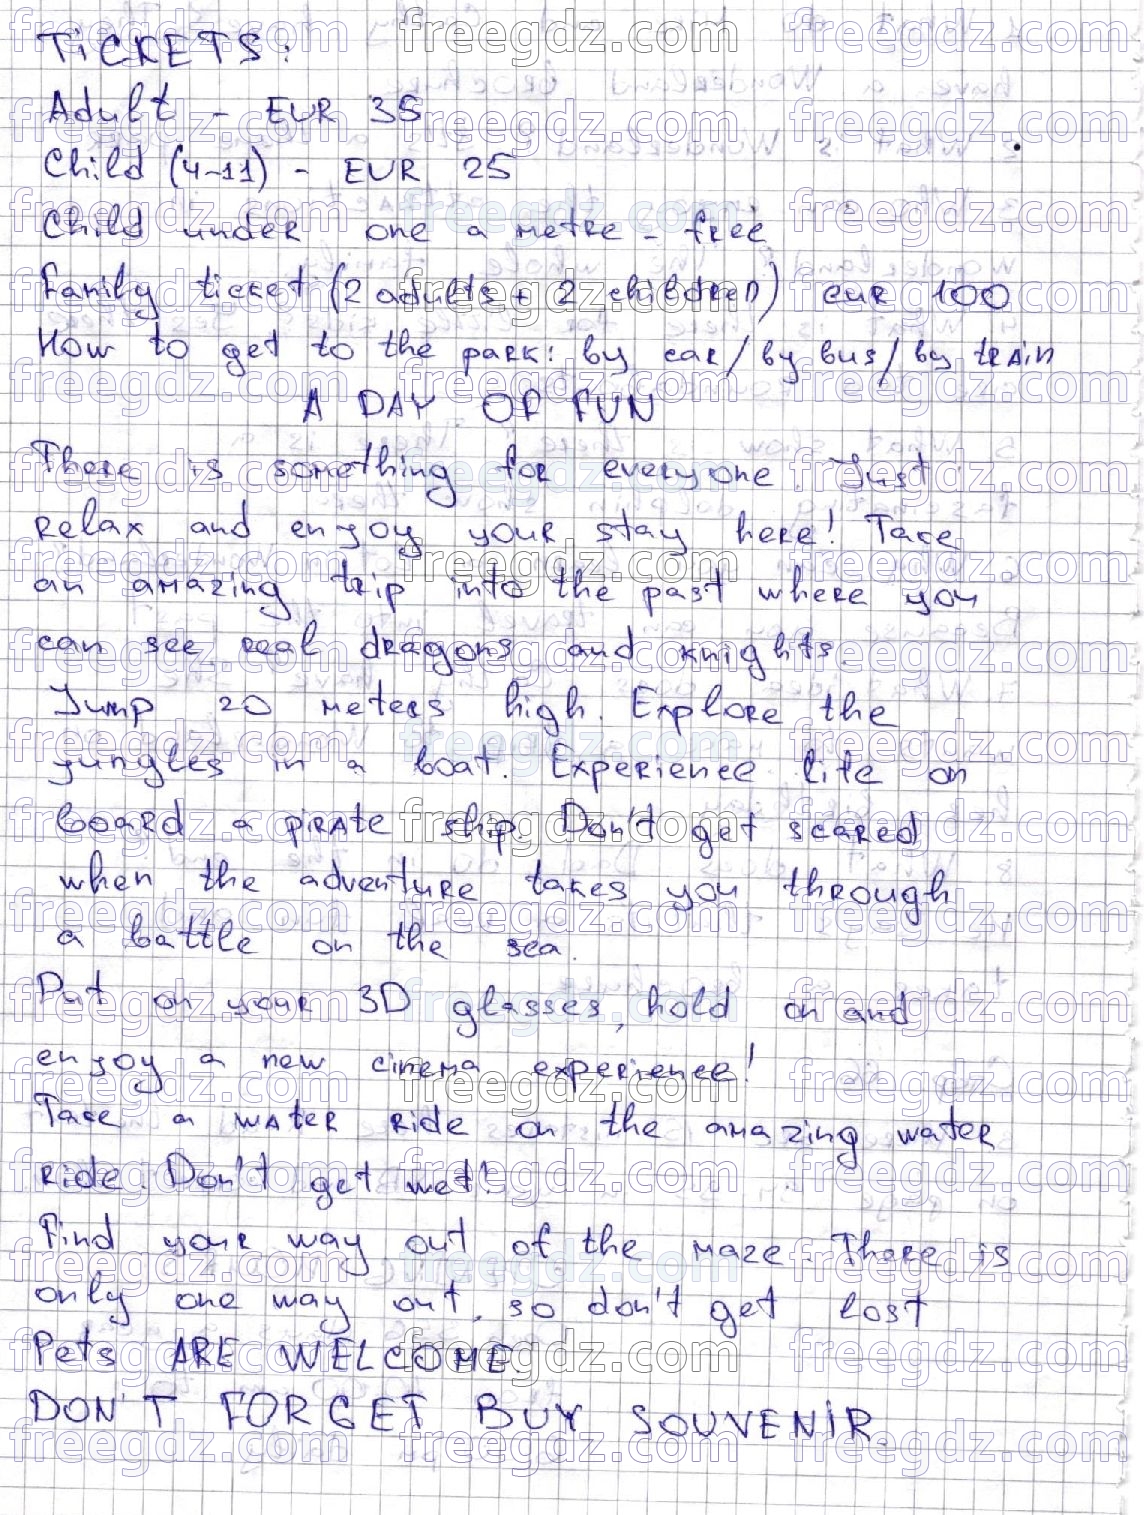 TiCKETS:
Adult - EUR 35
Child (4-11) - EUR 25
Child under one a metre - free
Family ticket (2 adults + 2 children) eur 100
How to get to the park: by car/by bus/by train
A DAY OF FUN
There is something for everyone. Just
relax and enjoy your stay here! Take
an amazing trip into the past where you
can see real dragons and knights.
Jump 20 meters high. Explore the
jungles in a boat. Experience life on
board a pirate ship. Don't get scared
when the adventure takes you through
a battle on the sea.
Put on your 3D glasses, hold on and
enjoy a new cinema experience!
Take a water ride on the amazing water
ride. Don't get wet!
Find your way out of the maze. There is
only one way out, so don't get lost
Pets ARE WELCOME
DON'T FORGET BUY SOUVENIR.
freegdz.com